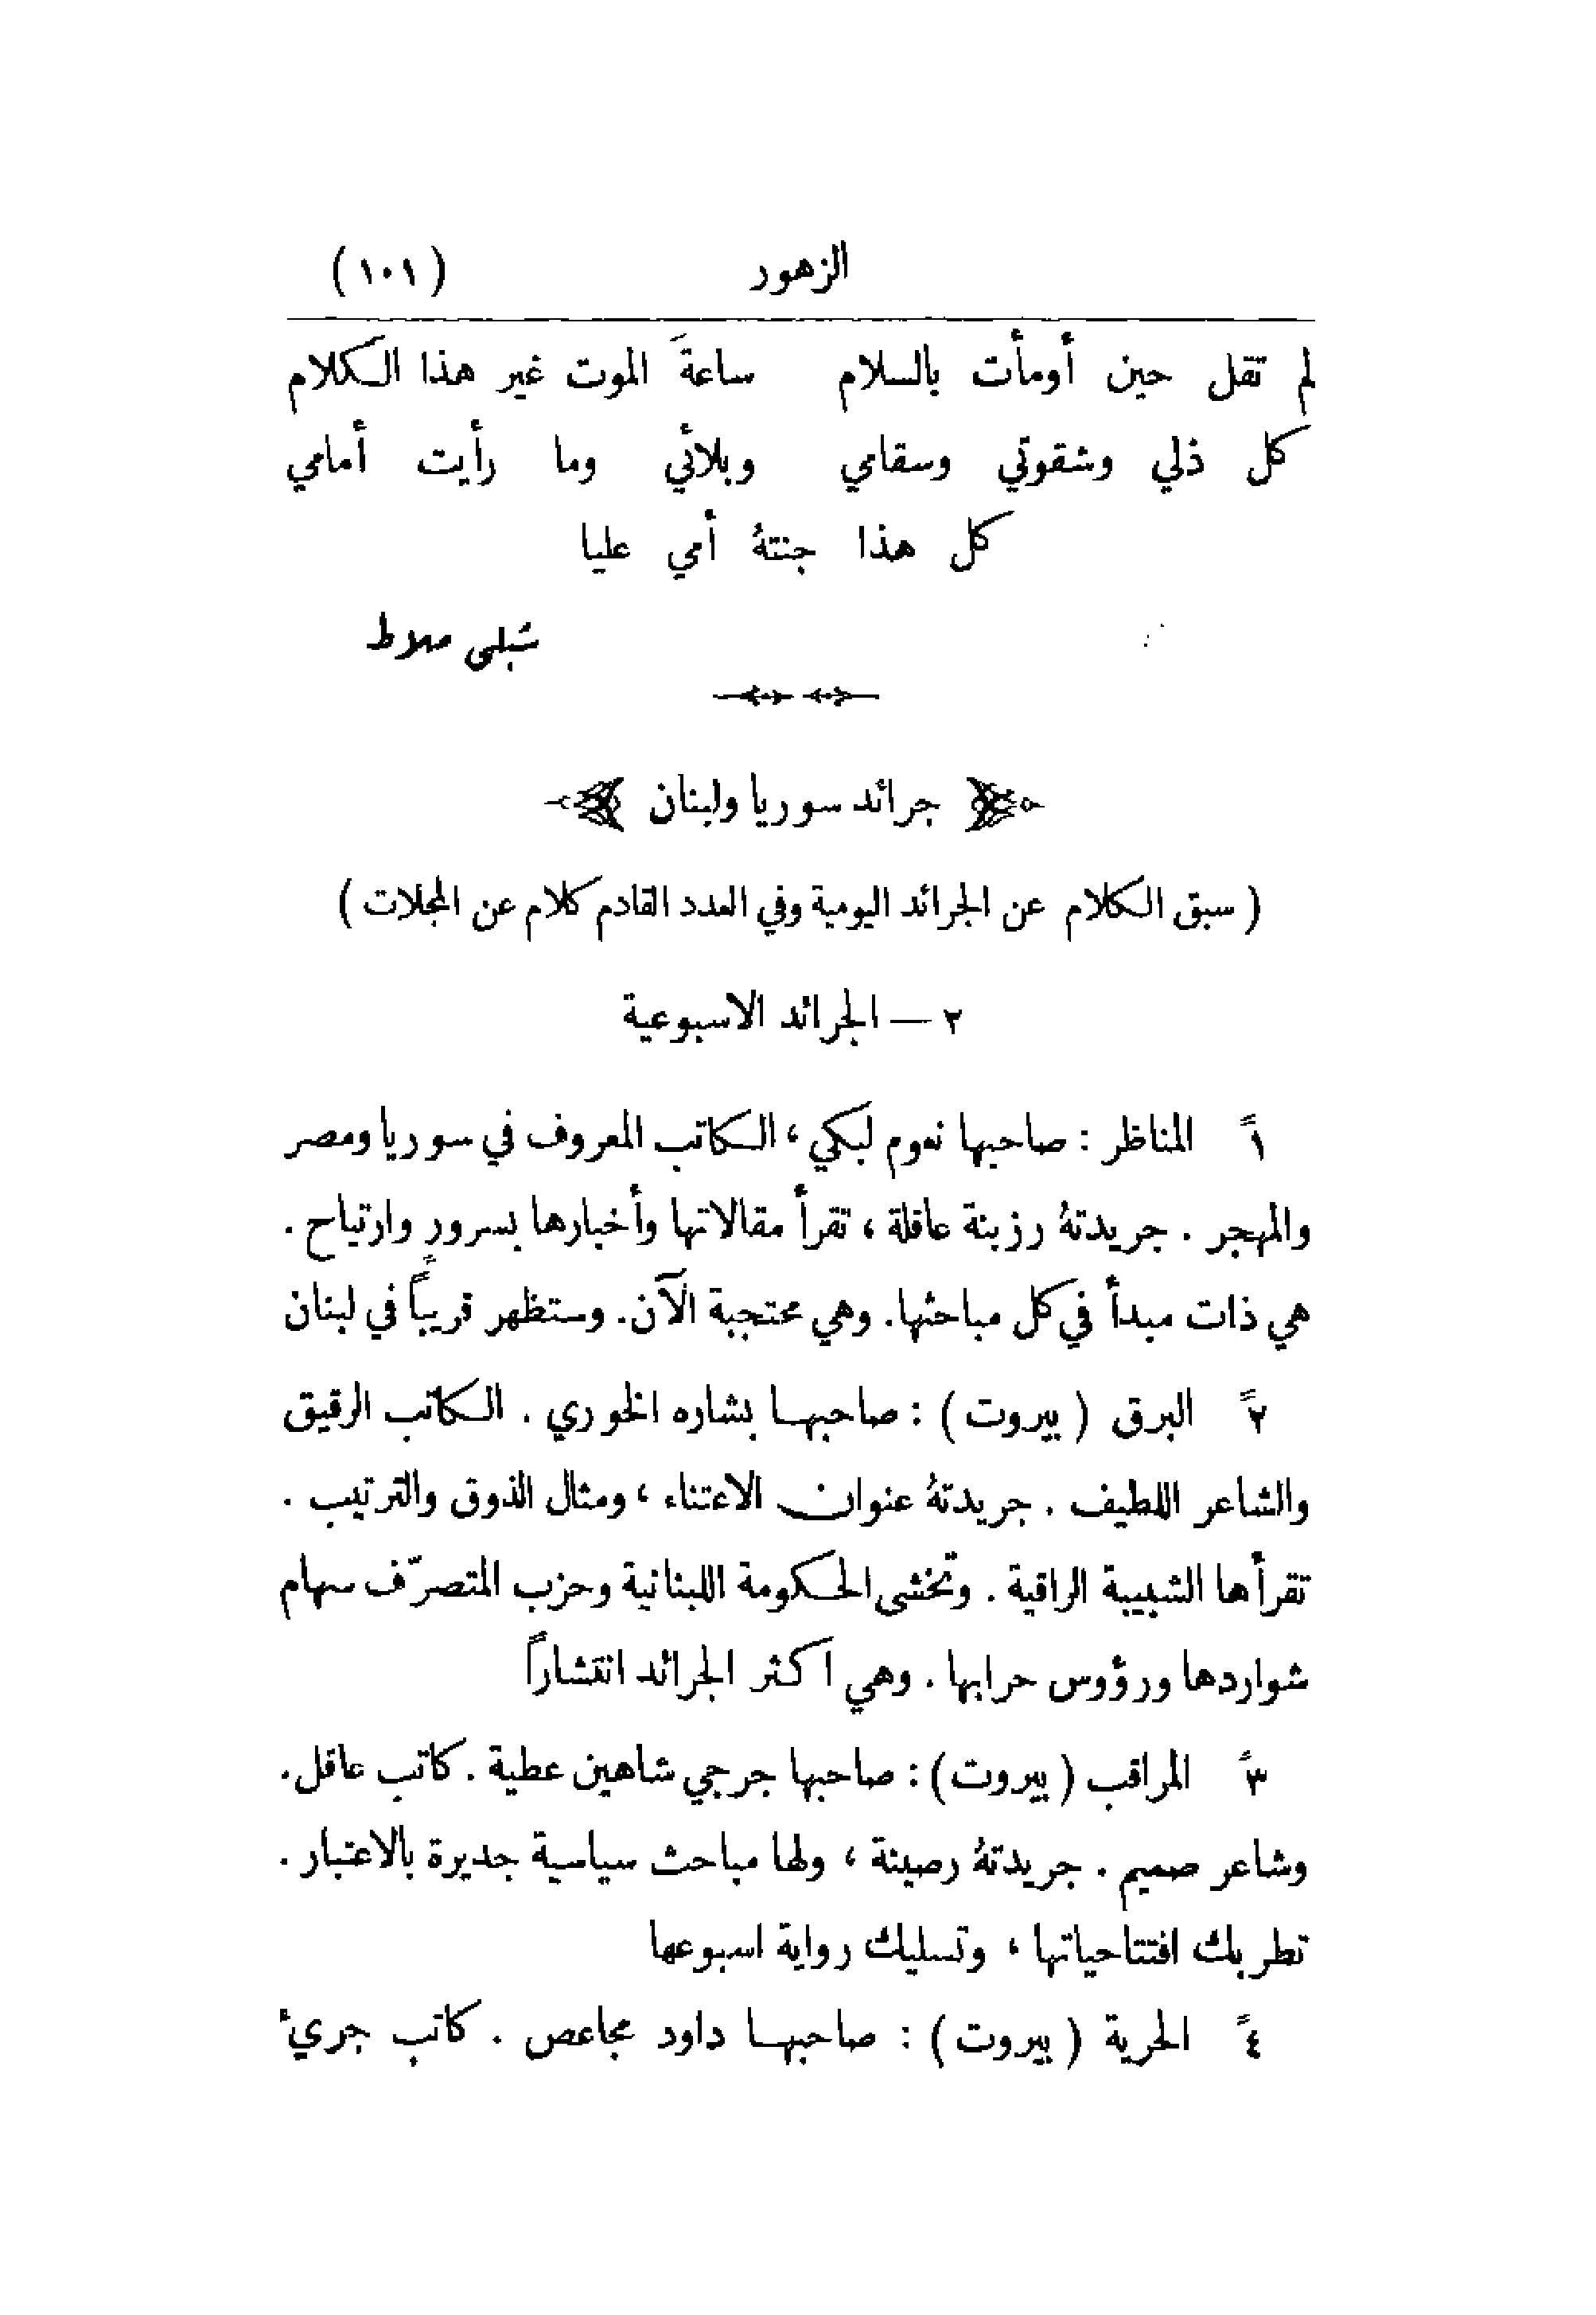 الزهور (١٠١)
لم تقل حين أومأت بالسلام ساعةَ الموت غير هذا الكلام
كل ذلي وشقوتي وسقامي وبلائي وما رأيت أمامي
كل هذا جنتهُ أمي عليا
شبلي ملاط
جرائد سوريا ولبنان
( سبق الكلام عن الجرائد اليومية وفي العدد القادم كلام عن المجلات )
٢ — الجرائد الاسبوعية
١ً المناظر : صاحبها نعوم لبكي ، الكاتب المعروف في سوريا ومصر
والمهجر . جريدتهُ رزينة عاقلة ، تقرأ مقالاتها وأخبارها بسرورٍ وارتياح .
هي ذات مبدأ في كل مباحثها. وهي محتجبة الآن. وستظهر قريباً في لبنان
٢ً البرق ( بيروت ) : صاحبها بشاره الخوري . الكاتب الرقيق
والشاعر اللطيف . جريدتهُ عنوان الاعتناء ، ومثال الذوق والترتيب .
تقرأها الشبيبة الراقية . وتخشى الحكومة اللبنانية وحزب المتصرّف سهام
شواردها ورؤوس حرابها . وهي اكثر الجرائد انتشاراً
٣ً المراقب ( بيروت ) : صاحبها جرجي شاهين عطية . كاتب عاقل.
وشاعر صميم . جريدتهُ رصينة ، ولها مباحث سياسية جديرة بالاعتبار .
تطربك افتتاحياتها ، وتسليك رواية اسبوعها
٤ً الحرية ( بيروت ) : صاحبها داود مجاعص . كاتب جريءٌ